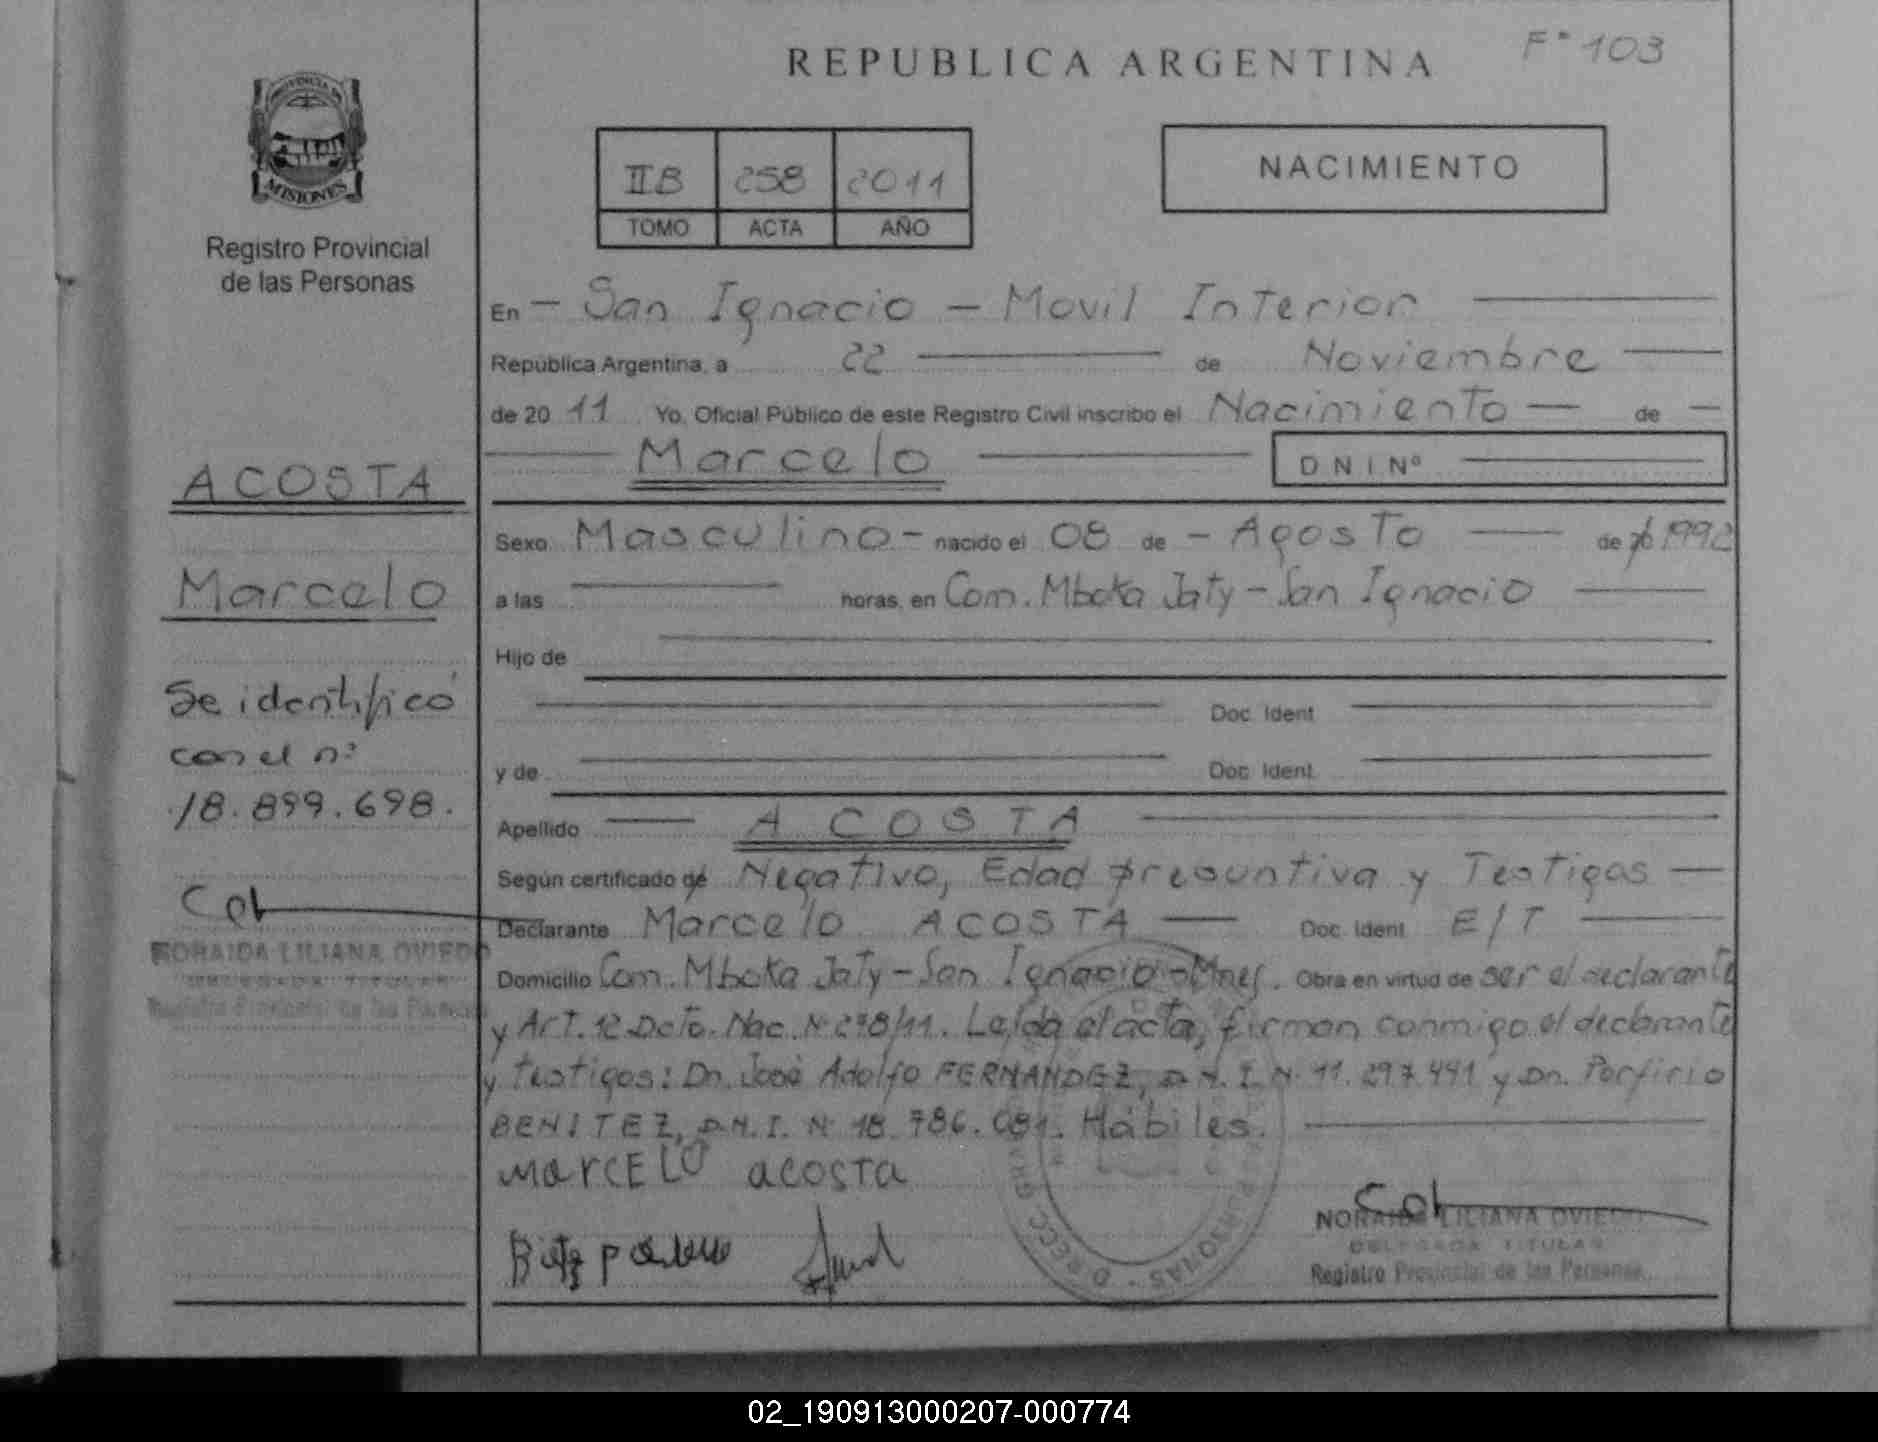 REPUBLICA ARGENTINA
Fº 103
PROVINCIA DE
MISIONES
Registro Provincial
de las Personas
IIB 258 2011
TOMO ACTA AÑO
NACIMIENTO
En - San Ignacio - Movil Interior
República Argentina, a 22 de Noviembre
de 20 11 Yo, Oficial Público de este Registro Civil inscribo el Nacimiento - de -
Marcelo
D N I Nº
ACOSTA
Marcelo
Se identificó
con el nº
18.899.698.
NORAIDA LILIANA OVIEDO
DELEGADA TITULAR
Registro Provincial de las Personas
Sexo Masculino - nacido el 08 de - Agosto de 1992
a las horas, en Com. Mboka Jaty - San Ignacio
Hijo de
Doc. Ident.
y de Doc. Ident.
Apellido ACOSTA
Según certificado de Negativo, Edad presuntiva y Testigos
Declarante Marcelo ACOSTA Doc. Ident. E/T
Domicilio Com. Mboka Jaty - San Ignacio - Mnes. Obra en virtud de ser el declarante
y Art. 12 Dcto. Nac. Nº 278/11. Leída el acta, firman conmigo el declarante
y testigos: Dn. José Adolfo FERNANDEZ, D.N.I. Nº 11.297.441 y Dn. Porfirio
BENITEZ, D.N.I. Nº 18.786.081. Hábiles.
MARCELO acosta
NORAIDA LILIANA OVIEDO
DELEGADA TITULAR
Registro Provincial de las Personas
02_190913000207-000774